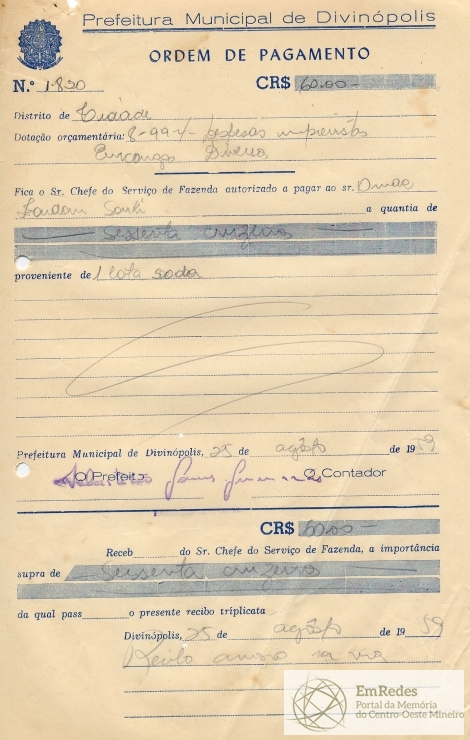 Prefeitura Municipal de Divinópolis
ORDEM DE PAGAMENTO
N.º 1.830 CR$ 60.00-
Distrito de Cidade
Dotação orçamentária: 8-99-4- despesas imprevistas
Diversos
Fica o Sr. Chefe do Serviço de Fazenda autorizado a pagar ao sr. Omar
a quantia de
Sessenta cruzeiros
proveniente de 1 lata soda
Prefeitura Municipal de Divinópolis, 25 de agôsto de 1959
O Prefeito O Contador
CR$ 60.00-
Receb do Sr. Chefe do Serviço de Fazenda, a importância
supra de Sessenta cruzeiros
da qual pass o presente recibo triplicata
Divinópolis, 25 de agôsto de 1959
Recibo anexo 1a via
EmRedes
Portal da Memória
do Centro-Oeste Mineiro